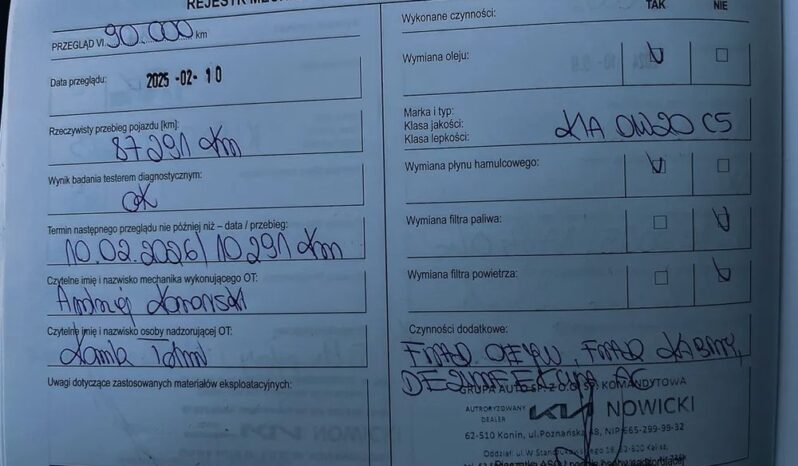 REJESTR
PRZEGLĄD VI 90.000 km
Data przeglądu: 2025 -02- 10
Rzeczywisty przebieg pojazdu [km]:
87291 km
Wynik badania testerem diagnostycznym:
OK
Termin następnego przeglądu nie później niż – data / przebieg:
10.02.2026/ 10291 km
Czytelne imię i nazwisko mechanika wykonującego OT:
Andrzej
Czytelne imię i nazwisko osoby nadzorującej OT:
Uwagi dotyczące zastosowanych materiałów eksploatacyjnych:
TAK NIE
Wykonane czynności:
Wymiana oleju:
Marka i typ:
Klasa jakości:
Klasa lepkości:
KIA 0W20 C5
Wymiana płynu hamulcowego:
Wymiana filtra paliwa:
Wymiana filtra powietrza:
Czynności dodatkowe:
FILTR OLEJU, FILTR KABINY,
DEZYNFEKCJA AC
GRUPA AUTO SP. Z O.O. SP. KOMANDYTOWA
AUTORYZOWANY
DEALER
KIA NOWICKI
62-510 Konin, ul.Poznańska 48, NIP 665-299-99-32
Oddział: ul. W. 62-800 Kalisz